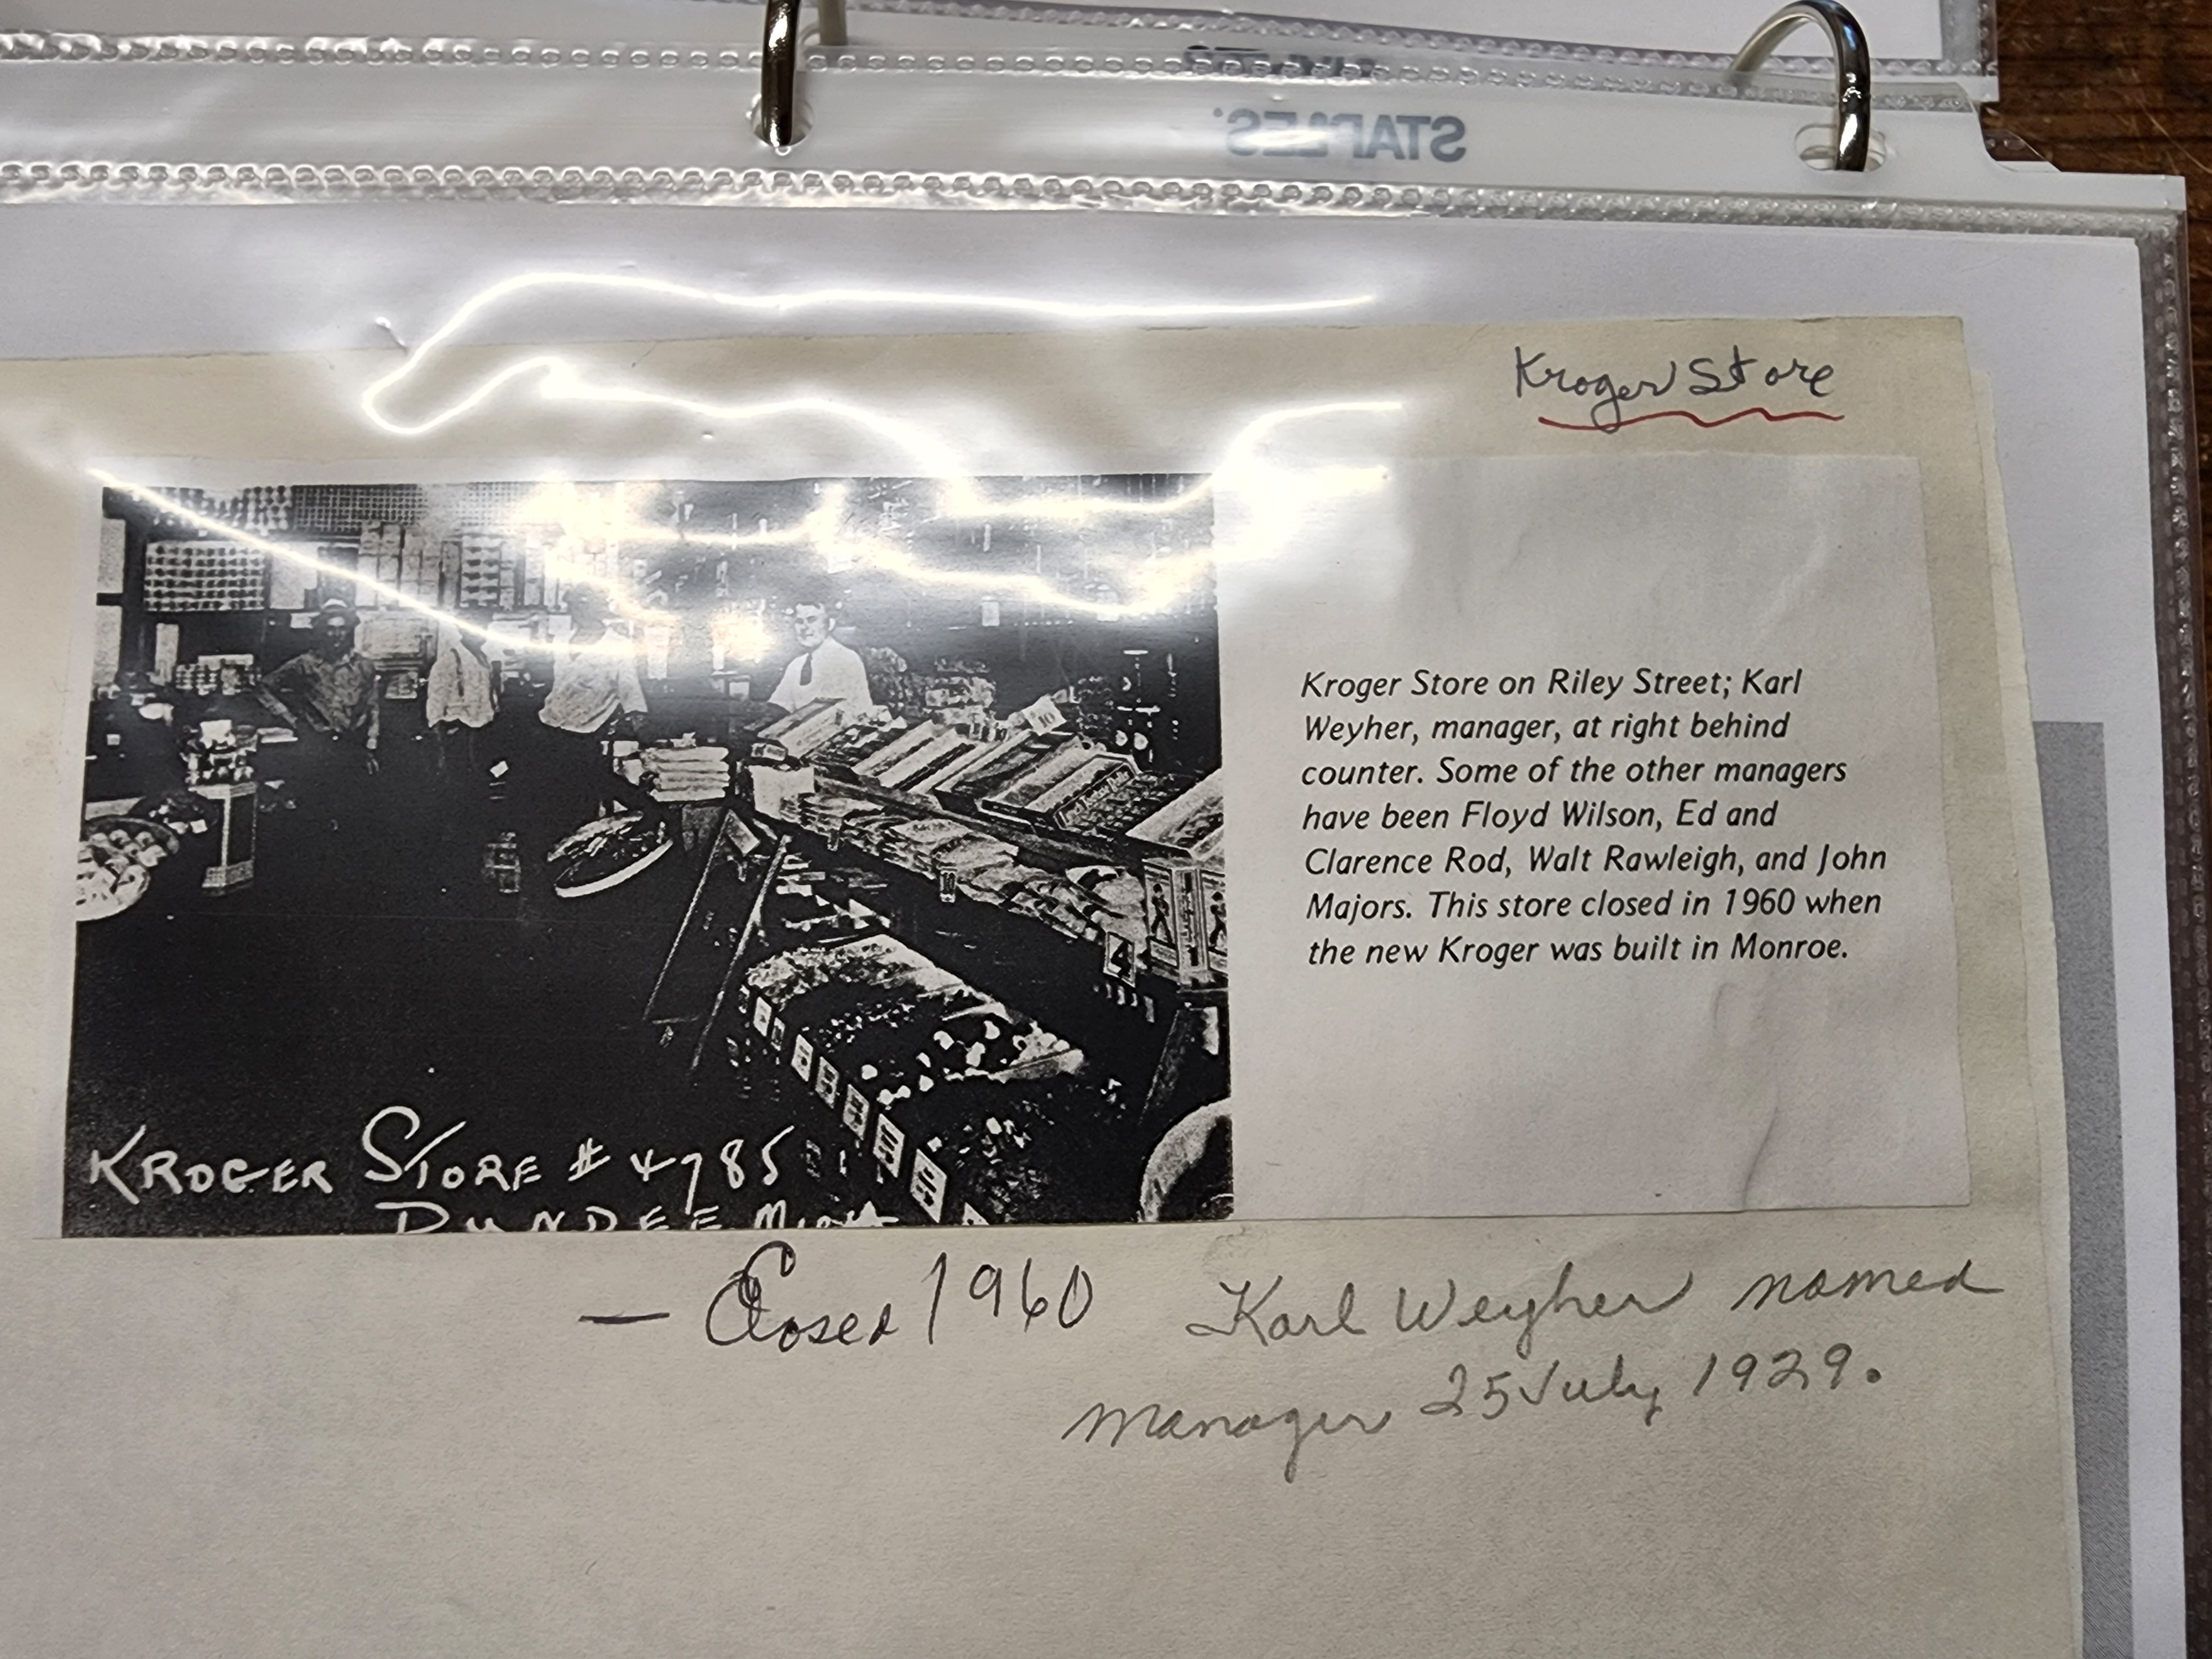 STAPLES
Kroger Store
Kroger Store on Riley Street; Karl
Weyher, manager, at right behind
counter. Some of the other managers
have been Floyd Wilson, Ed and
Clarence Rod, Walt Rawleigh, and John
Majors. This store closed in 1960 when
the new Kroger was built in Monroe.
10
4
KROGER STORE # 4785
DUNDEE MICH
— Closed 1960
Karl Weyher named
manager 25 July 1929.